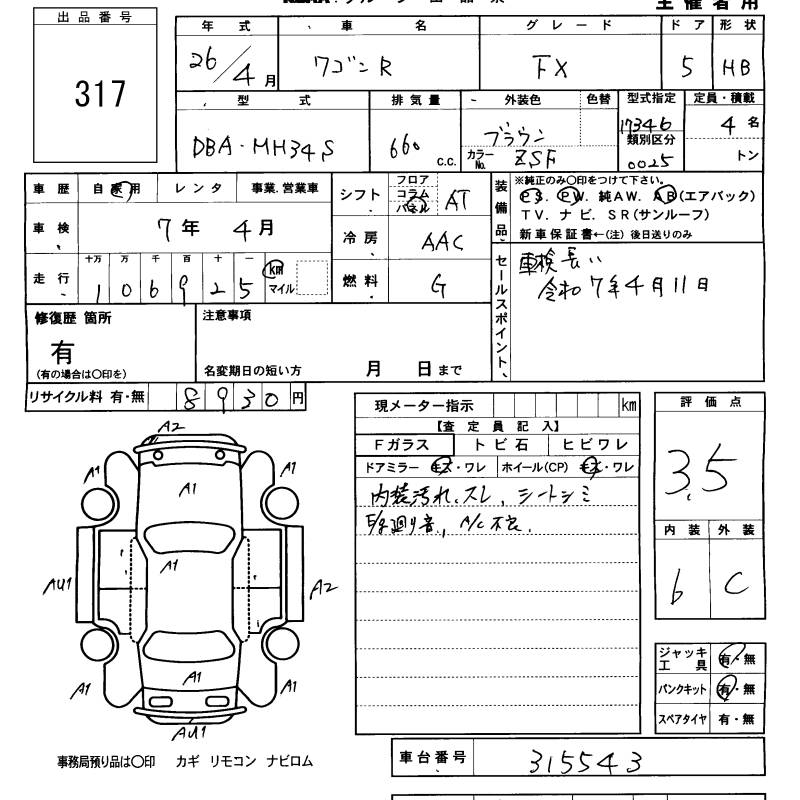 主催者用
出品番号
317
年式 車名 グレード ドア 形状
26/4月 ワゴンR FX 5 HB
型式 排気量 外装色 色替 型式指定 定員・積載
DBA-MH34S 660 c.c. ブラウン 17346 4名
カラーNo. ZSF 類別区分 0025 トン
車歴 自家用 レンタ 事業.営業車
車検 7年 4月
走行 十万 万 千 百 十 一
106925 km マイル
シフト フロア コラム パネル AT
冷房 AAC
燃料 G
装備品
※純正のみ○印をつけて下さい。
PS. PW. 純AW. AB(エアバック)
TV. ナビ. SR(サンルーフ)
新車保証書←(注)後日送りのみ
セールスポイント
車検長い
令和7年4月11日
修復歴 箇所
有
(有の場合は○印を)
注意事項
名変期日の短い方 月 日まで
リサイクル料 有・無 8930円
現メーター指示 km
【査定員記入】
Fガラス トビ石 ヒビワレ
ドアミラー キズ・ワレ ホイール(CP) キズ・ワレ
内装汚れ、スレ、シートシミ
廻り音、A/C不良.
評価点
3.5
内装 外装
b C
ジャッキ工具 有・無
パンクキット 有・無
スペアタイヤ 有・無
A2
A1 A1 A1
A1
AU1 A2
A1 A1 A1
AU1
事務局預り品は○印 カギ リモコン ナビロム
車台番号 315543